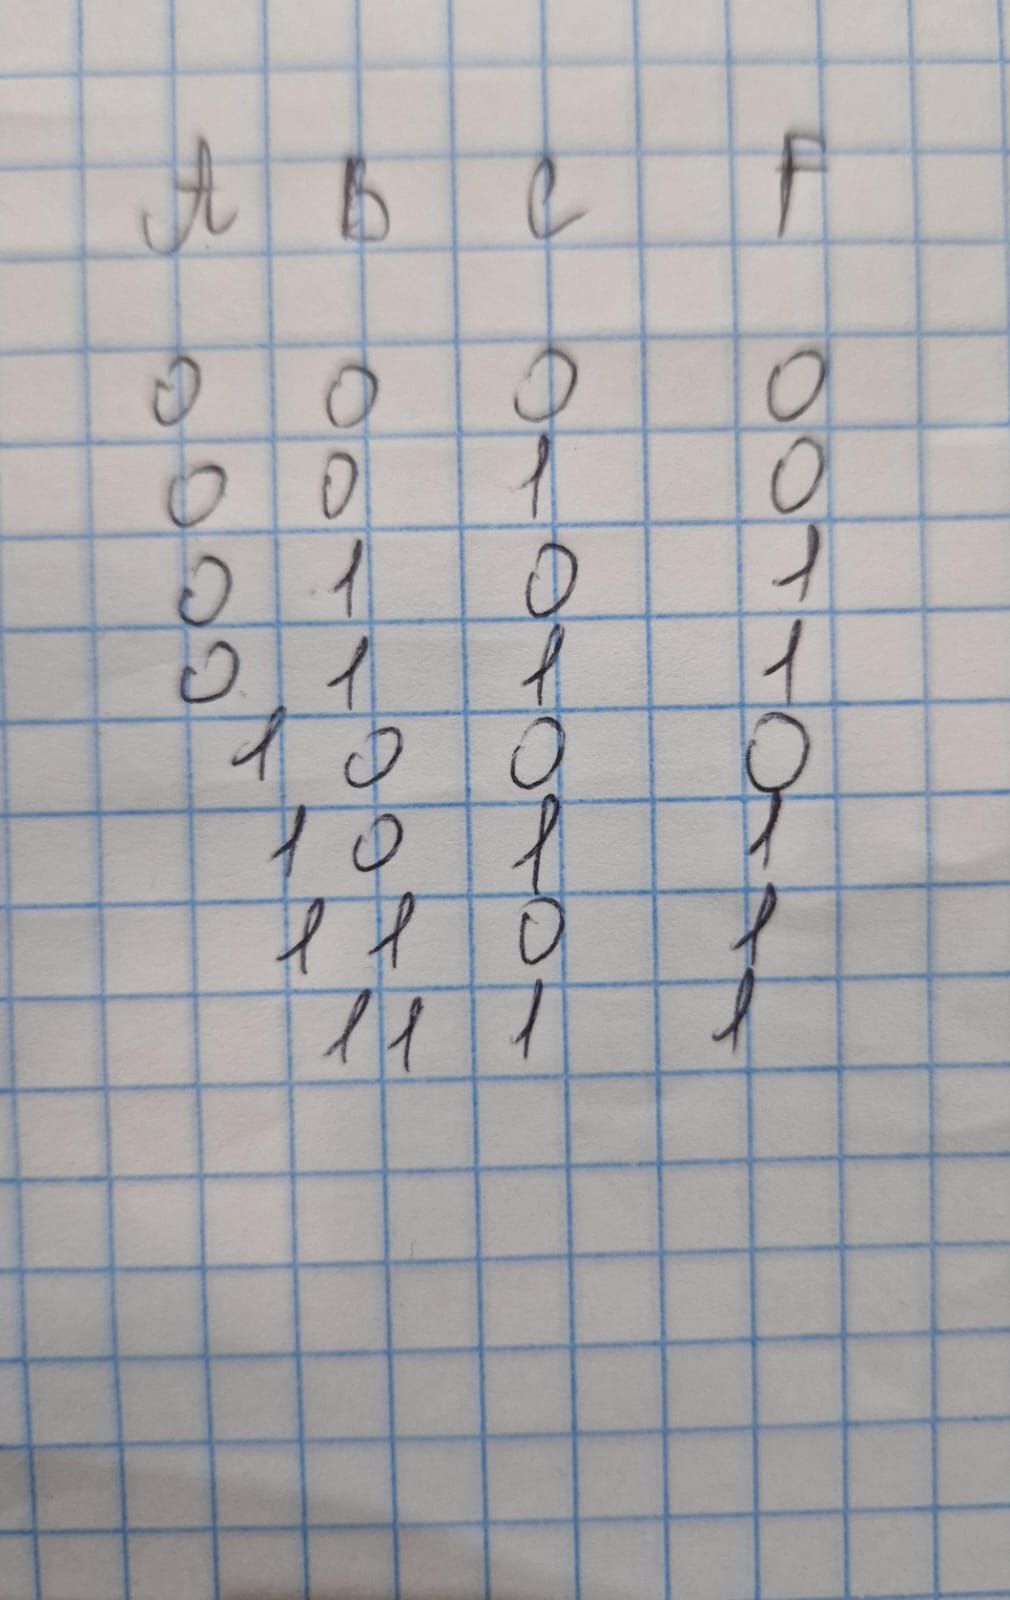 A B C F
0 0 0 0
0 0 1 0
0 1 0 1
0 1 1 1
1 0 0 0
1 0 1 1
1 1 0 1
1 1 1 1